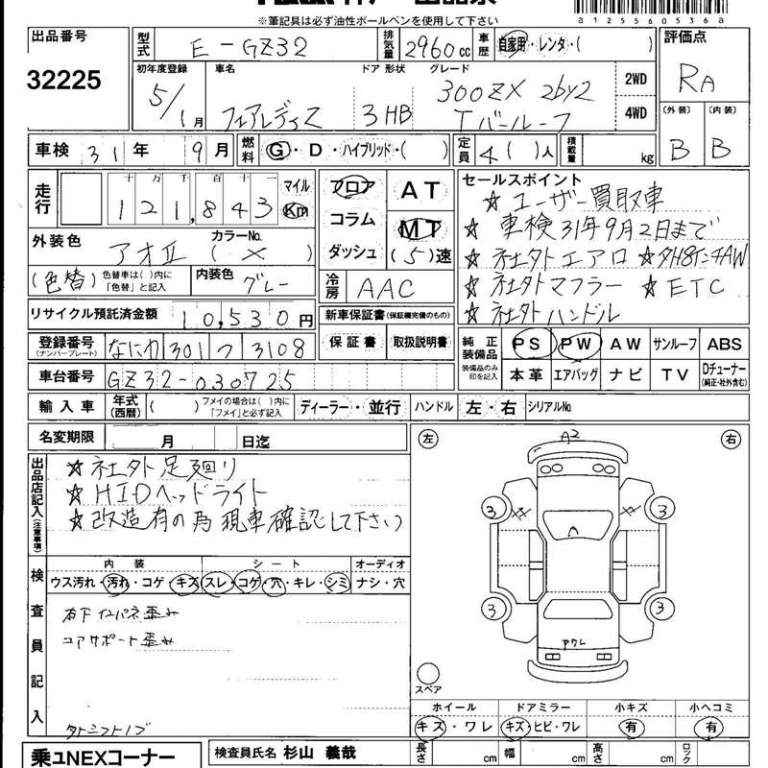 ※筆記具は必ず油性ボールペンを使用して下さい
a12556053 6a
出品番号 32225
型式 E-GZ32 排気量 2960cc 車歴 自家用・レンタ・( )
評価点 RA
初年度登録 5/1月 車名 フェアレディZ ドア 形状 3HB グレード 300ZX 2by2 Tバールーフ 2WD 4WD
(外装) B (内装) B
車検 31年 9月 燃料 G・D・ハイブリッド・( ) 定員 4( )人 積載量 kg
走行 十 万 千 百 十 一 121,843 マイル Km
フロア コラム ダッシュ AT MT (5)速
外装色 アオII カラーNo. (×)
(色替) 色替車は( )内に「色替」と記入 内装色 グレー
冷房 AAC
セールスポイント
☆ユーザー買取車
☆車検31年9月2日まで
☆社外エアロ ☆外18インチAW
☆社外マフラー ☆ETC
☆社外ハンドル
リサイクル預託済金額 10,530円
新車保証書(保証継完備のもの)
保証書 取扱説明書
登録番号 (ナンバープレート) なにわ 301 つ 3108
車台番号 GZ32-030725
純正装備品 装備品のみ印を記入 PS PW AW サンルーフ ABS
本革 エアバッグ ナビ TV Dチューナー(純正・社外含む)
輸入車 年式(西暦) ( ) フメイの場合は( )内に「フメイ」と必ず記入 ディーラー・並行 ハンドル 左・右 シリアルNo
名変期限 月 日迄
出品店記入(注意事項)
☆社外足廻り
☆HIDヘッドライト
☆改造有の為現車確認して下さい
左 右
A2
3 XX XX 3
3 3
アクレ
スペア
検査員記入
内装 シート オーディオ
ウス汚れ・汚れ・コゲ・キズ スレ・コゲ・穴・キレ・シミ ナシ・穴
右下インパネ歪み
コアサポート歪み
外シフトノブ
ホイール ドアミラー 小キズ 小ヘコミ
キズ・ワレ キズ・ヒビ・ワレ 有 有
乗ユNEXコーナー
検査員氏名 杉山 義哉
長さ cm 幅 cm 高さ cm ロック